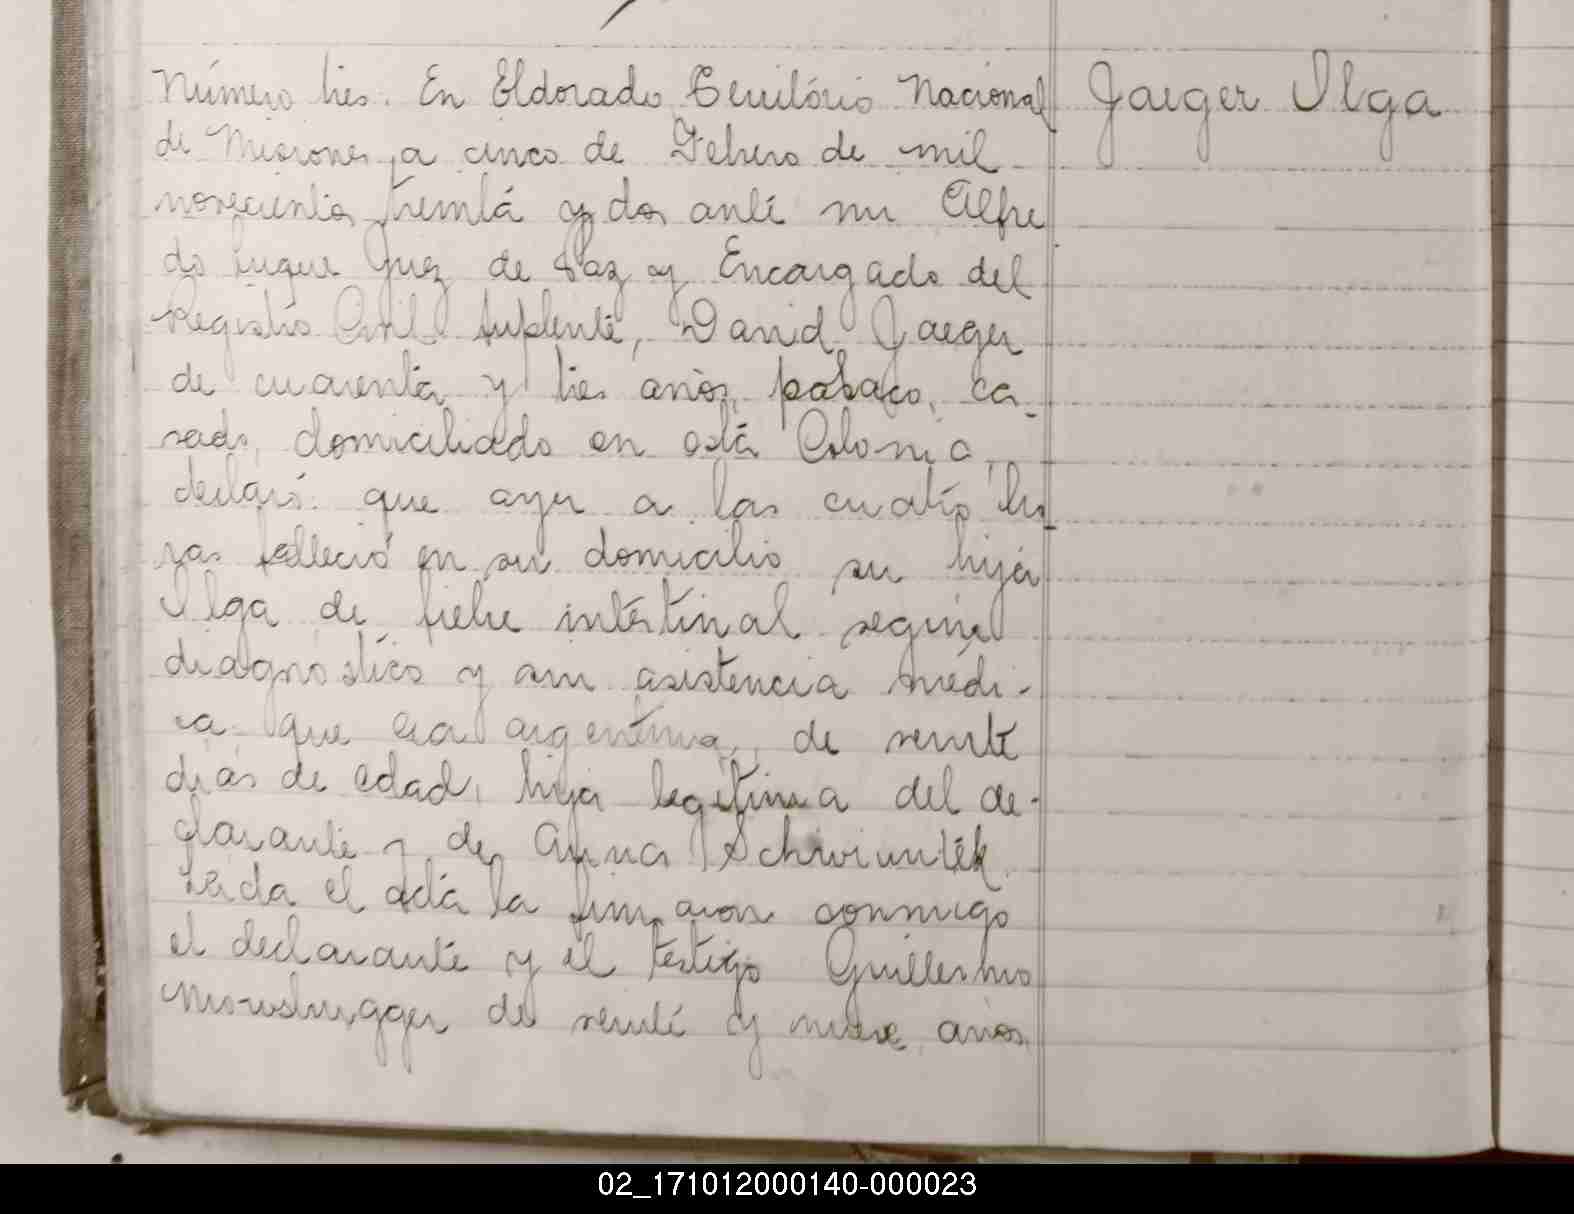 Número tres. En Eldorado Território Nacional
Jaeger Ilga
de Misiones, a cinco de Febrero de mil
novecientos treinta y dos ante mi Alfre
do Luque Juez de Paz y Encargado del
Registro Civil Suplente, David Jaeger
de cuarenta y tres años, polaco, ca-
sado, domiciliado en esta Colonia,
declaró: que ayer a las cuatro ho
ras falleció en su domicilio su hija
Ilga de fiebre intestinal según
diagnostico y sin asistencia médi-
ca que era argentina, de veinte
días de edad, hija legítima del de-
clarante y de Anna
Leida el acta la firmaron conmigo
el declarante y el testigo Guillermo
de veinte y nueve años
02_171012000140-000023